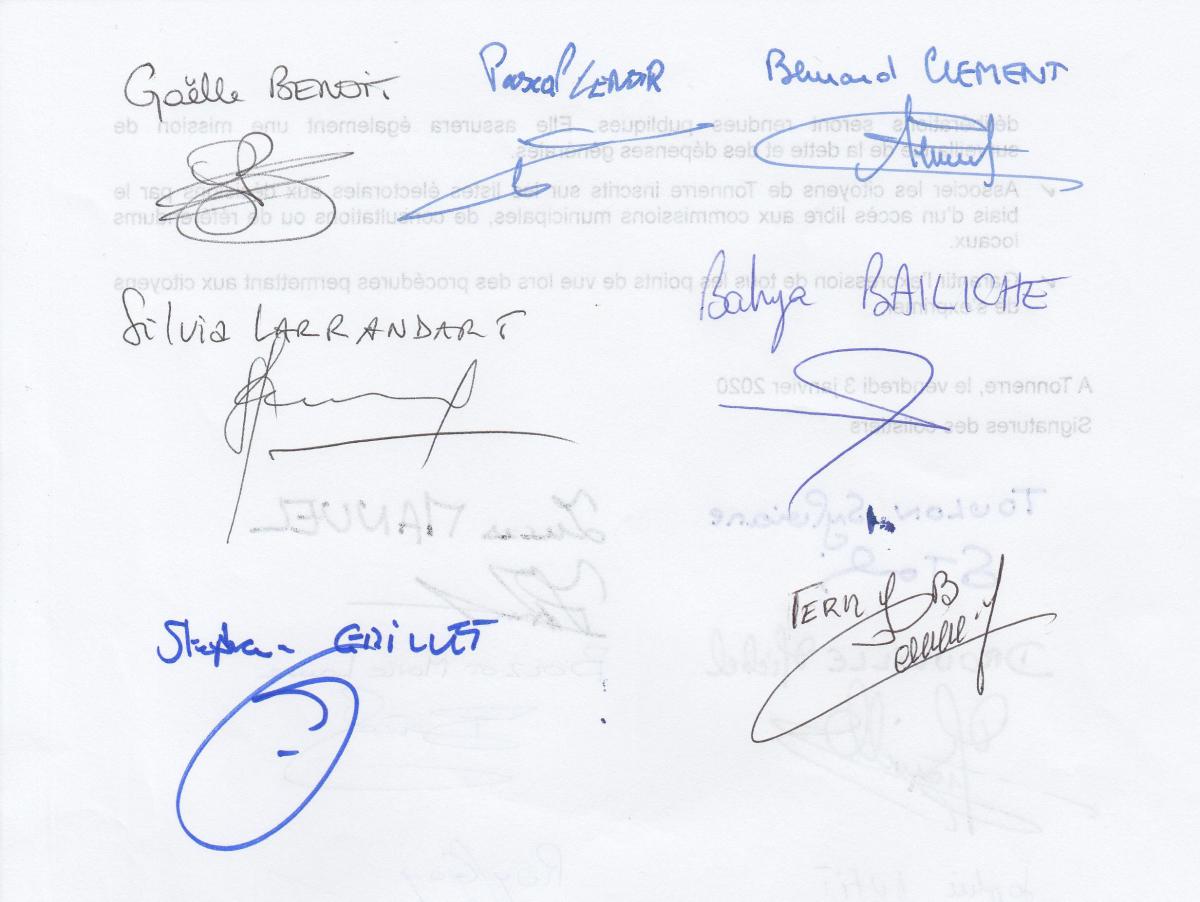 Gaëlle BENOIT
Pascal LENOIR
Bernard CLEMENT
délibérations seront rendues publiques. Elle assurera également une mission de
surveillance de la dette et des dépenses générales.
✓ Associer les citoyens de Tonnerre inscrits sur les listes électorales aux décisions par le
biais d'un accès libre aux commissions municipales, de consultations ou de référendums
locaux.
✓ Garantir l'expression de tous les points de vue lors des procédures permettant aux citoyens
de s'exprimer
Silvia LARRANDART
Bahya BAILICHE
A Tonnerre, le vendredi 3 janvier 2020
Signatures des colistiers
TOULON Sylviane
MANUEL
Stéphane GRILLET
TERNY B